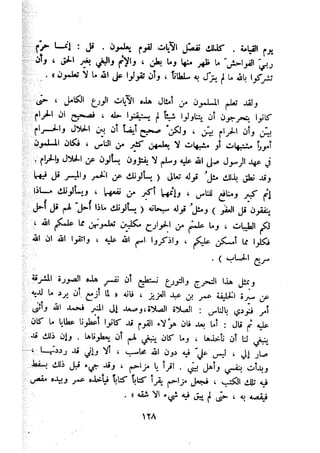 يوم القيامة . كذلك نفصل الآيات لقوم يعلمون . قل : إنمـا حرّم
ربي الفواحش ما ظهر منها وما بطن ، والإثم والبغي بغير الحق ، وأن
تشركوا بالله ما لم ينزل به سلطاناً ، وأن تقولوا على الله ما لا تعلمون » .
ولقد تعلم المسلمون من أمثال هذه الآيات الورع الكامل ، حتى
كانوا يتحرجون أن يتناولوا شيئاً لم يستيقنوا حله ، فصحيح ان الحرام
بيّن وأن الحرام بيّن ، ولكن صحيح أيضاً أن بين الحلال والحـــرام
أموراً مشتبهات أو مشبهات لا يعلمهن كثير من الناس ، فكان المسلمون
في عهد الرسول صلى الله عليه وسلم لا يفتؤون يسألون عن الحلال والحرام .
وقد نطق بذلك مثل قوله تعالى ( يسألونك عن الخمر والميسر قل فيهما
إثم كبير ومنافع للناس ، وإثمهما أكبر من نفعهما ، ويسألونك مــاذا
ينفقون قل العفو ) ومثل قوله سبحانه ( يسألونك ماذا أحل لهم قل أحل
لكم الطيبات ، وما علمتم من الجوارح مكلبين تعلمونهن مما علمكم الله ،
فكلوا مما أمسكن عليكم ، واذكروا اسم الله عليه ، واتقوا الله ان الله
سريع الحساب ) .
وبمثل هذا التحرج والتورع نستطيع أن نفسر هذه الصورة المشرقة
عن سيرة الخليفة عمر بن عبد العزيز ، فانه « لما أزمع أن يرد ما لديه
أمر فنودي بالناس : الصلاة الصلاة، وصعد إلى المنبر فحمد الله وأثنى
عليه ثم قال : أما بعد فان هؤلاء القوم قد كانوا أعطونا عطايا ما كان
ينبغي لنا أن نأخذها ، وما كان ينبغي لهم أن يعطوناها . وإن ذلك قد
صار إلي ، ليس علي فيه دون الله محاسب ، ألا وإني قد رددتهـــا ،
وبدأت بنفسي وأهل بيتي . اقرأ يا مزاحم ، وقد جيء قبل ذلك بسفط
فيه تلك الكتب ، فجعل مزاحم يقرأ كتاباً كتاباً فيأخذه عمر وبيده مقص
فيقصه به ، حتى لم يبق فيه شيء الا شقه » .
١٢٨